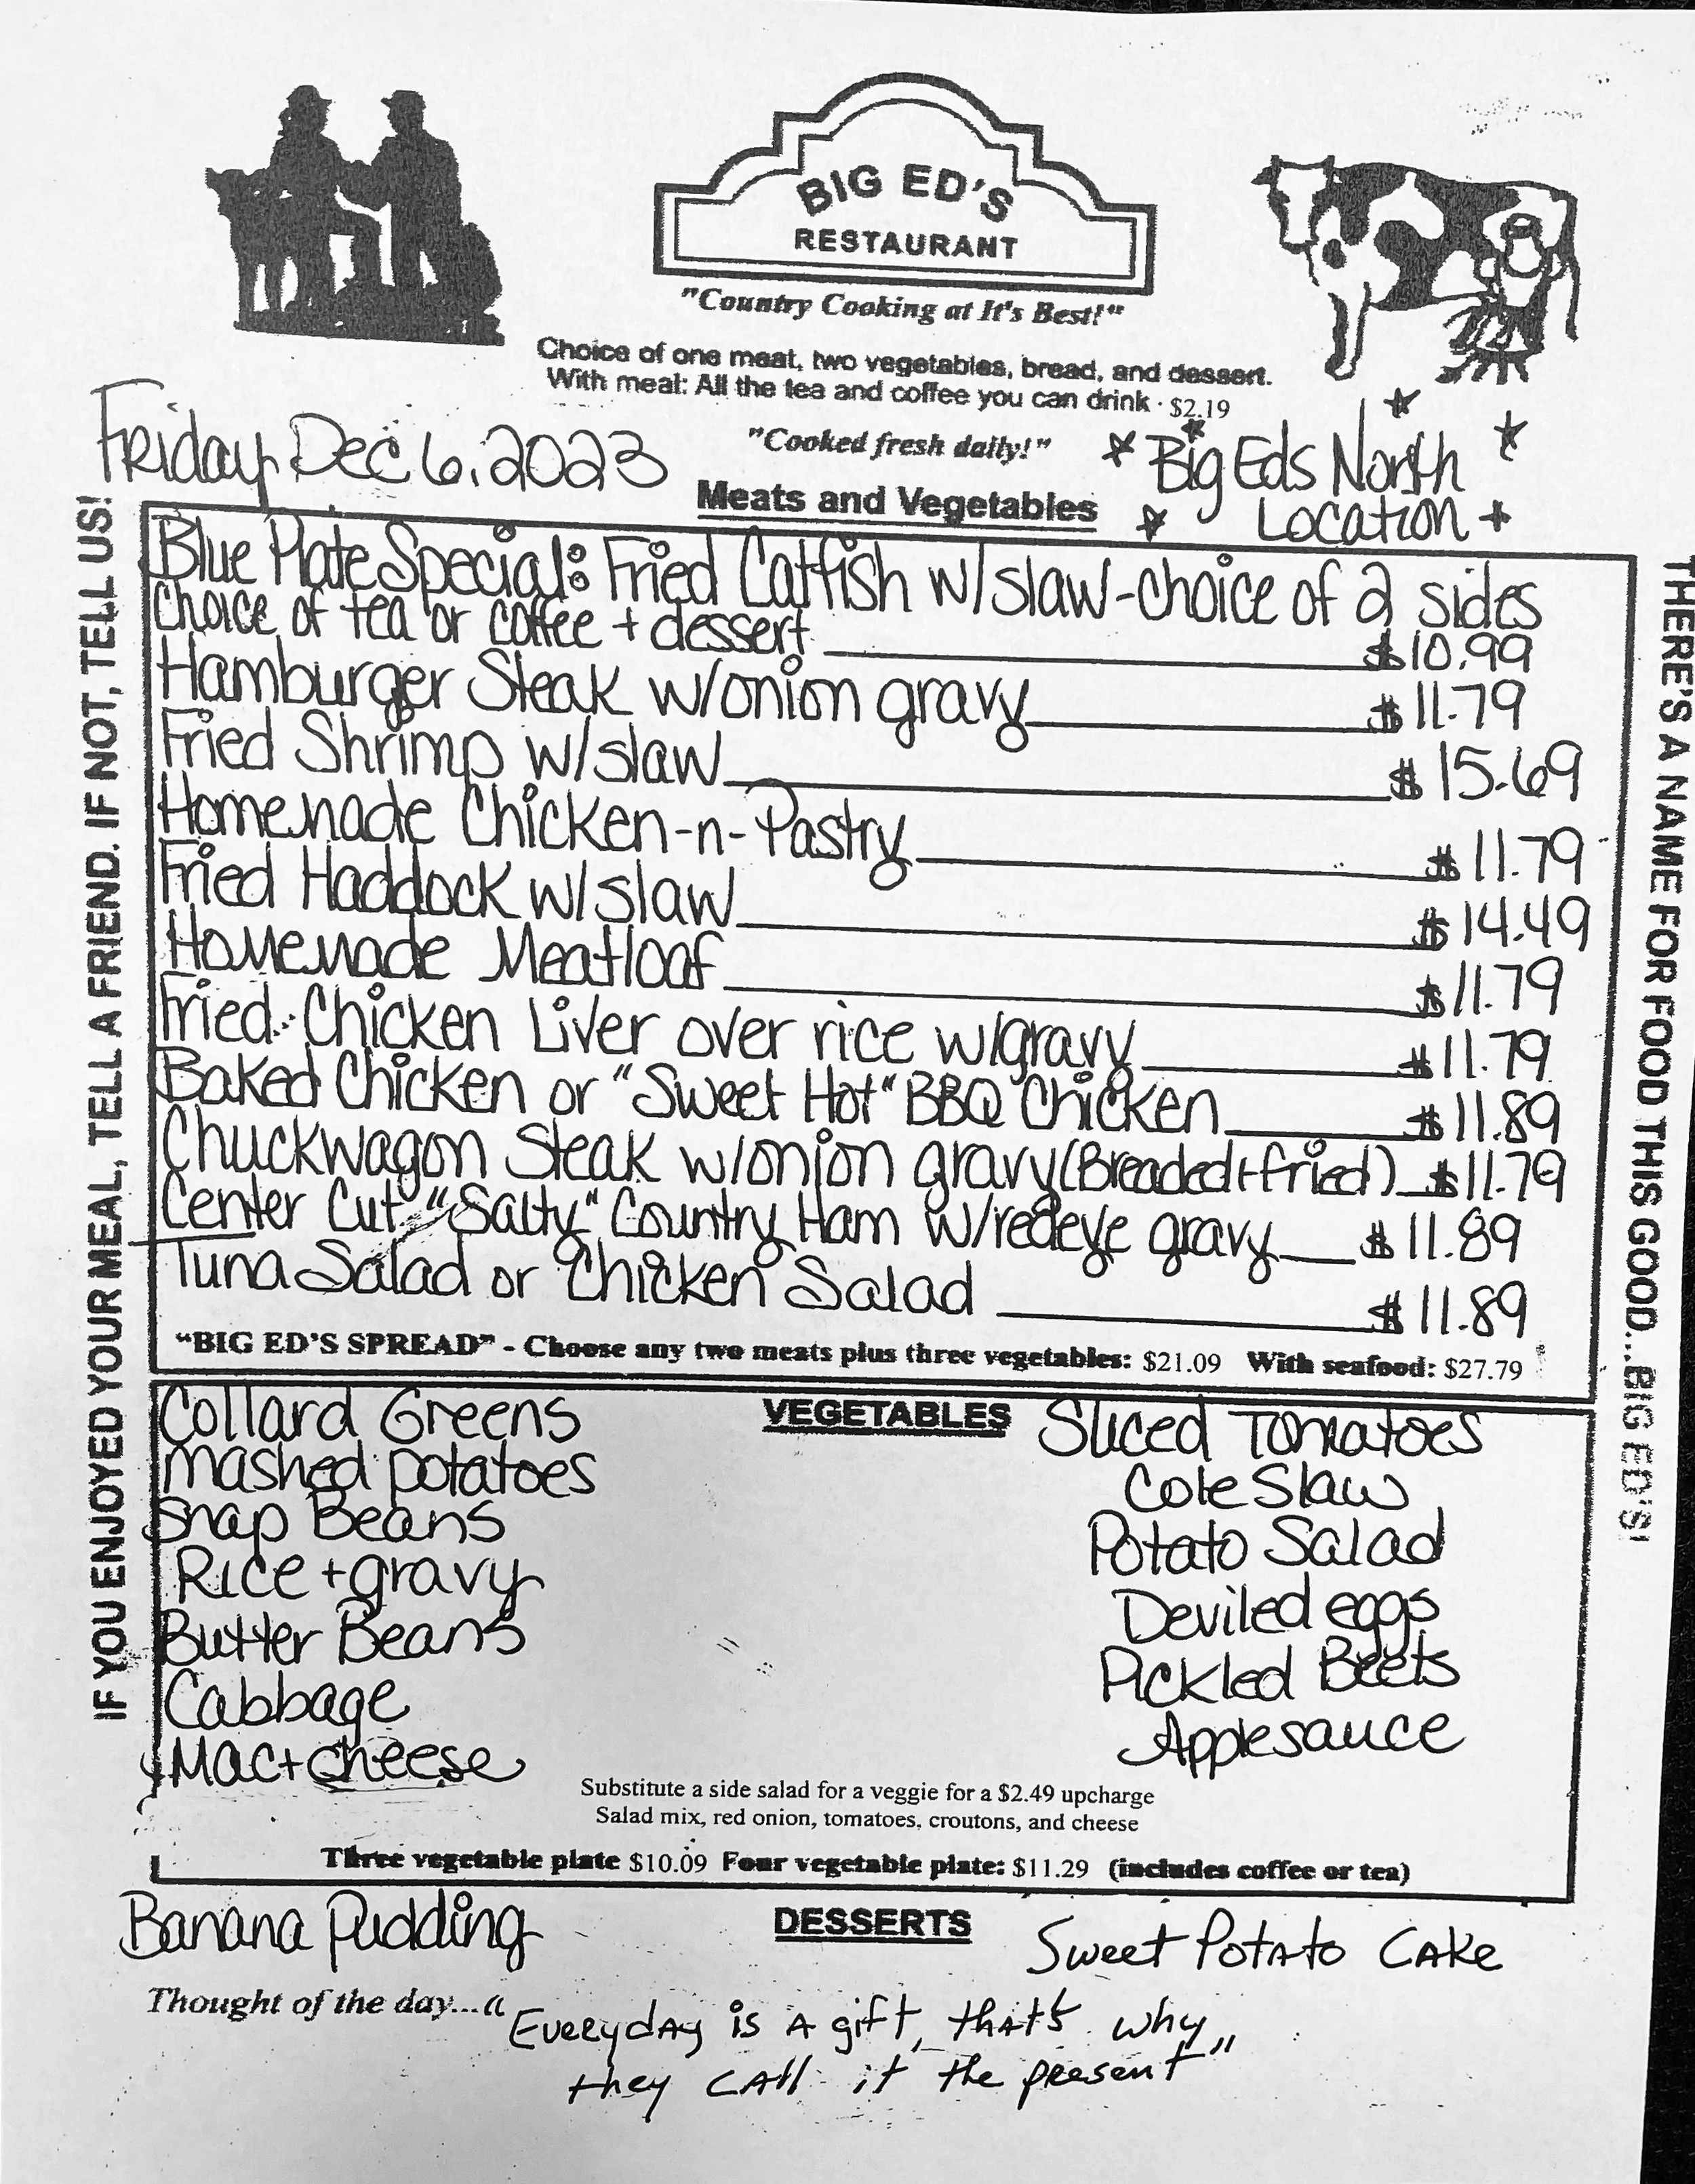 BIG ED'S
RESTAURANT
"Country Cooking at It's Best!"
Choice of one meat, two vegetables, bread, and dessert.
With meal: All the tea and coffee you can drink · $2.19
Friday, Dec 6, 2023
"Cooked fresh daily!"
Big Eds North
Location
Meats and Vegetables
Blue Plate Special: Fried Catfish w/slaw-choice of 2 sides
Choice of tea or coffee + dessert $10.99
Hamburger Steak w/onion gravy $11.79
Fried Shrimp w/slaw $15.69
Homemade Chicken-n-Pastry $11.79
Fried Haddock w/slaw $14.49
Homemade Meatloaf $11.79
Fried Chicken Liver over rice w/gravy $11.79
Baked Chicken or "Sweet Hot" BBQ Chicken $11.89
Chuckwagon Steak w/onion gravy (Breaded+fried) $11.79
Center Cut "Salty" Country Ham w/redeye gravy $11.89
Tuna Salad or Chicken Salad $11.89
"BIG ED'S SPREAD" - Choose any two meats plus three vegetables: $21.09 With seafood: $27.79
VEGETABLES
Collard Greens
mashed potatoes
Snap Beans
Rice + gravy
Butter Beans
Cabbage
Mac + cheese
Sliced Tomatoes
Cole Slaw
Potato Salad
Deviled eggs
Pickled Beets
Applesauce
Substitute a side salad for a veggie for a $2.49 upcharge
Salad mix, red onion, tomatoes, croutons, and cheese
Three vegetable plate $10.09 Four vegetable plate: $11.29 (includes coffee or tea)
DESSERTS
Banana Pudding
Sweet Potato Cake
Thought of the day... "Everyday is a gift, that's why
they call it the present"
IF YOU ENJOYED YOUR MEAL, TELL A FRIEND. IF NOT, TELL US!
THERE'S A NAME FOR FOOD THIS GOOD...BIG ED'S!